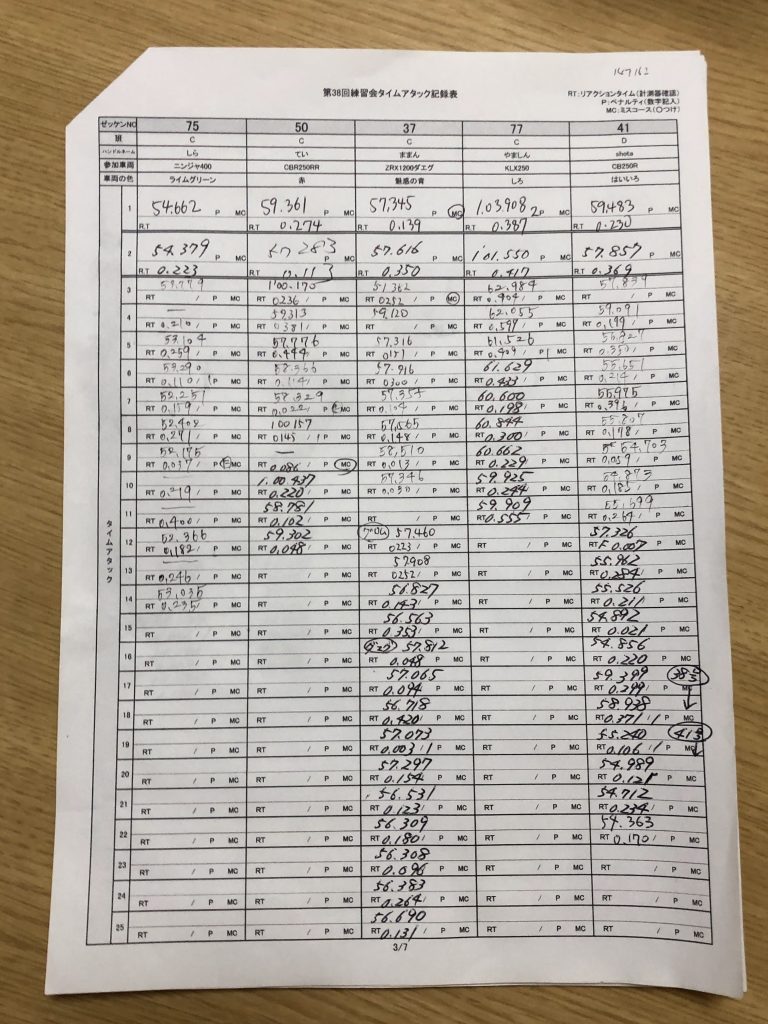 147162
第38回練習会タイムアタック記録表
RT:リアクションタイム(計測器確認)
P:ペナルティ(数字記入)
MC:ミスコース(〇つけ)
ゼッケンNO 75 50 37 77 41
班 C C C C D
ハンドルネーム しら てい ままん やましん shota
参加車両 ニンジャ400 CBR250RR ZRX1200ダエグ KLX250 CB250R
車両の色 ライムグリーン 赤 魅惑の青 しろ はいいろ
タイムアタック
1 54.662 P MC 59.361 P MC 57.345 P MC 1.03.908 2P MC 59.483 P MC
R.T R.T 0.274 R.T 0.139 R.T 0.387 R.T 0.230
2 54.379 P MC 57.283 P MC 57.616 P MC 1'01.550 P MC 57.857 P MC
R.T 0.223 R.T 0.113 R.T 0.350 R.T 0.417 R.T 0.369
3 53.779 1'00.170 51.362 62.984 57.839
RT / P MC RT 0236 / P MC RT 0252 / P MC RT 0.904 / P MC RT / P MC
4 — 59.313 59.120 62.055 59.091
RT 0.210 / P MC RT 0381 / P MC RT / P MC RT 0.597 / P MC RT 0.199 / P MC
5 53.104 57.776 57.316 61.526
RT 0.259 / P MC RT 0.444 / P MC RT 0181 / P MC RT 0.409 / P MC RT 0.350 / P MC
6 53.290 57.916 61.629 55.651
RT 0.110 / P MC RT 0.114 / P MC RT 0300 / P MC RT 0.433 / P MC RT 0.214 / P MC
7 52.251 58.329 57.354 60.600 55.975
RT 0.159 / P MC RT 0.022 / P MC RT 0.104 / P MC RT 0.198 / P MC RT 0.396 / P MC
8 52.402 1'00.157 57.565 60.844 55.807
RT 0.271 / P MC RT 0145 / P MC RT 0.148 / P MC RT 0.300 / P MC RT 0.178 / P MC
9 52.175 — 58.510 60.662 54.703
RT 0.037 / P MC RT 0.086 / P MC RT 0.013 / P MC RT 0.229 / P MC RT 0.059 / P MC
10 — 1.00.437 57.346 59.925 54.873
RT 0.219 / P MC RT 0.220 / P MC RT 0.050 / P MC RT 0.244 / P MC RT 0.182 / P MC
11 — 58.781 59.909 55.599
RT 0.400 / P MC RT 0.102 / P MC RT / P MC RT 0.555 / P MC RT 0.264 / P MC
12 52.366 59.302 57.460 57.326
RT 0.182 / P MC RT 0.048 / P MC RT 0223 / P MC RT / P MC RT F 0.007 / P MC
13 — 57.908 55.962
RT 0.246 / P MC RT / P MC RT 0252 / P MC RT / P MC RT 0.284 / P MC
14 53.035 56.827 55.526
RT 0.235 / P MC RT / P MC RT 0.143 / P MC RT / P MC RT 0.211 / P MC
15 56.563 54.892
RT / P MC RT / P MC RT 0.353 / P MC RT / P MC RT 0.021 / P MC
16 ダエグ 57.812 54.856
RT / P MC RT / P MC RT 0.048 / P MC RT / P MC RT 0.220 / P MC
17 57.065 59.399
RT / P MC RT / P MC RT 0.094 / P MC RT / P MC RT 0.299 / P MC
18 56.718 58.938
RT / P MC RT / P MC RT 0.420 / P MC RT / P MC RT 0.371 / 1 P MC
19 57.073 55.240
RT / P MC RT / P MC RT 0.003 / 1 P MC RT / P MC RT 0.106 / 1 P MC
20 57.297 54.989
RT / P MC RT / P MC RT 0.154 / P MC RT / P MC RT 0.121 / P MC
21 56.531 54.712
RT / P MC RT / P MC RT 0.123 / P MC RT / P MC RT 0.234 / P MC
22 56.309 54.363
RT / P MC RT / P MC RT 0.180 / P MC RT / P MC RT 0.170 / P MC
23 56.308
RT / P MC RT / P MC RT 0.096 / P MC RT / P MC RT / P MC
24 56.383
RT / P MC RT / P MC RT 0.264 / P MC RT / P MC RT / P MC
25 56.690
RT / P MC RT / P MC RT 0.131 / P MC RT / P MC RT / P MC
3/7